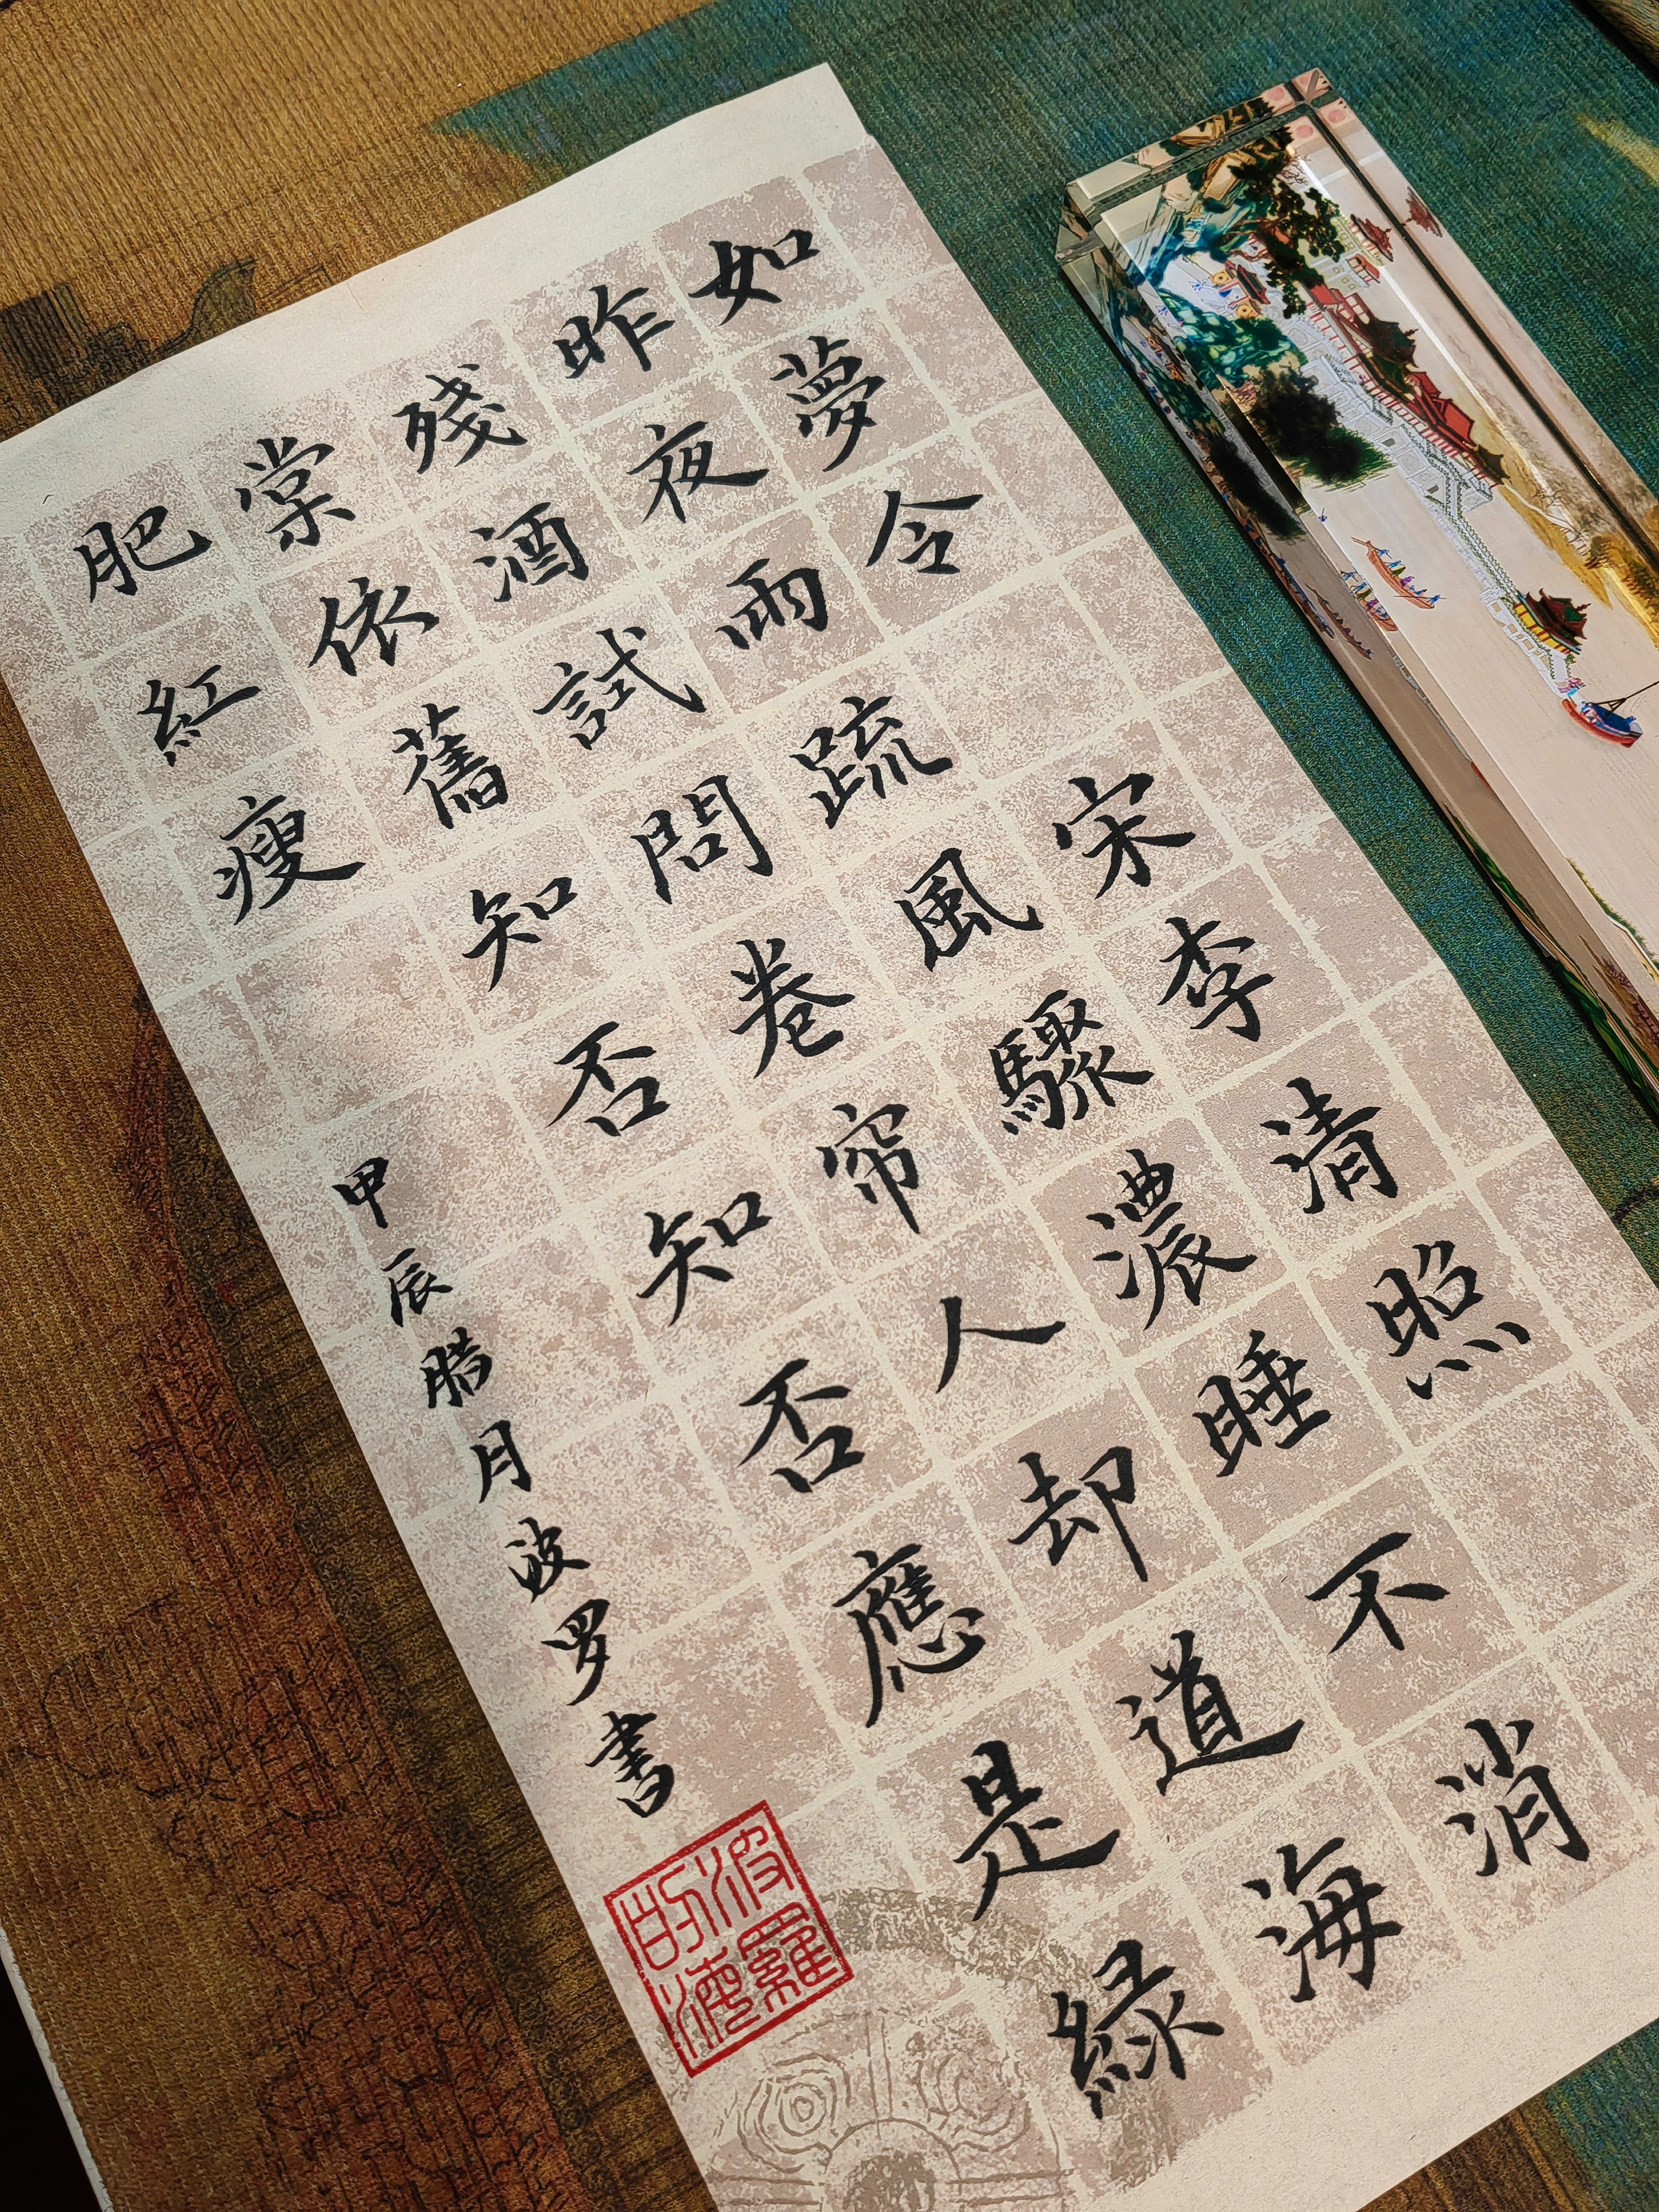 如夢令 宋李清照
昨夜雨疏風驟濃睡不消
殘酒試問卷帘人却道海
棠依舊知否知否應是綠
肥紅瘦
甲辰腊月波罗書
波羅
的